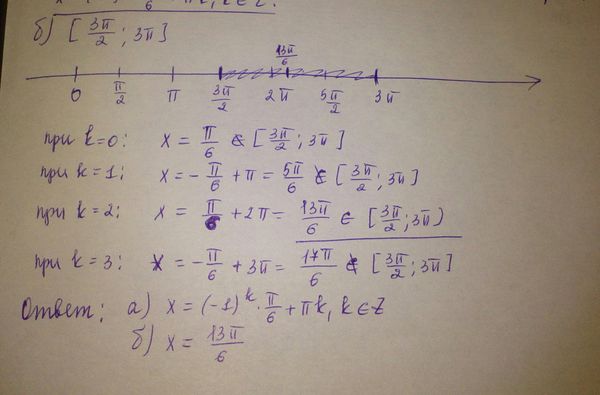 б) [3π/2; 3π]
13π/6
0 π/2 π 3π/2 2π 5π/2 3π
при k=0: x = π/6 ∉ [3π/2; 3π]
при k=1: x = -π/6 + π = 5π/6 ∉ [3π/2; 3π]
при k=2: x = π/6 + 2π = 13π/6 ∈ [3π/2; 3π)
при k=3: x = -π/6 + 3π = 17π/6 ∉ [3π/2; 3π]
Ответ: а) x = (-1)^k · π/6 + πk, k ∈ Z
б) x = 13π/6